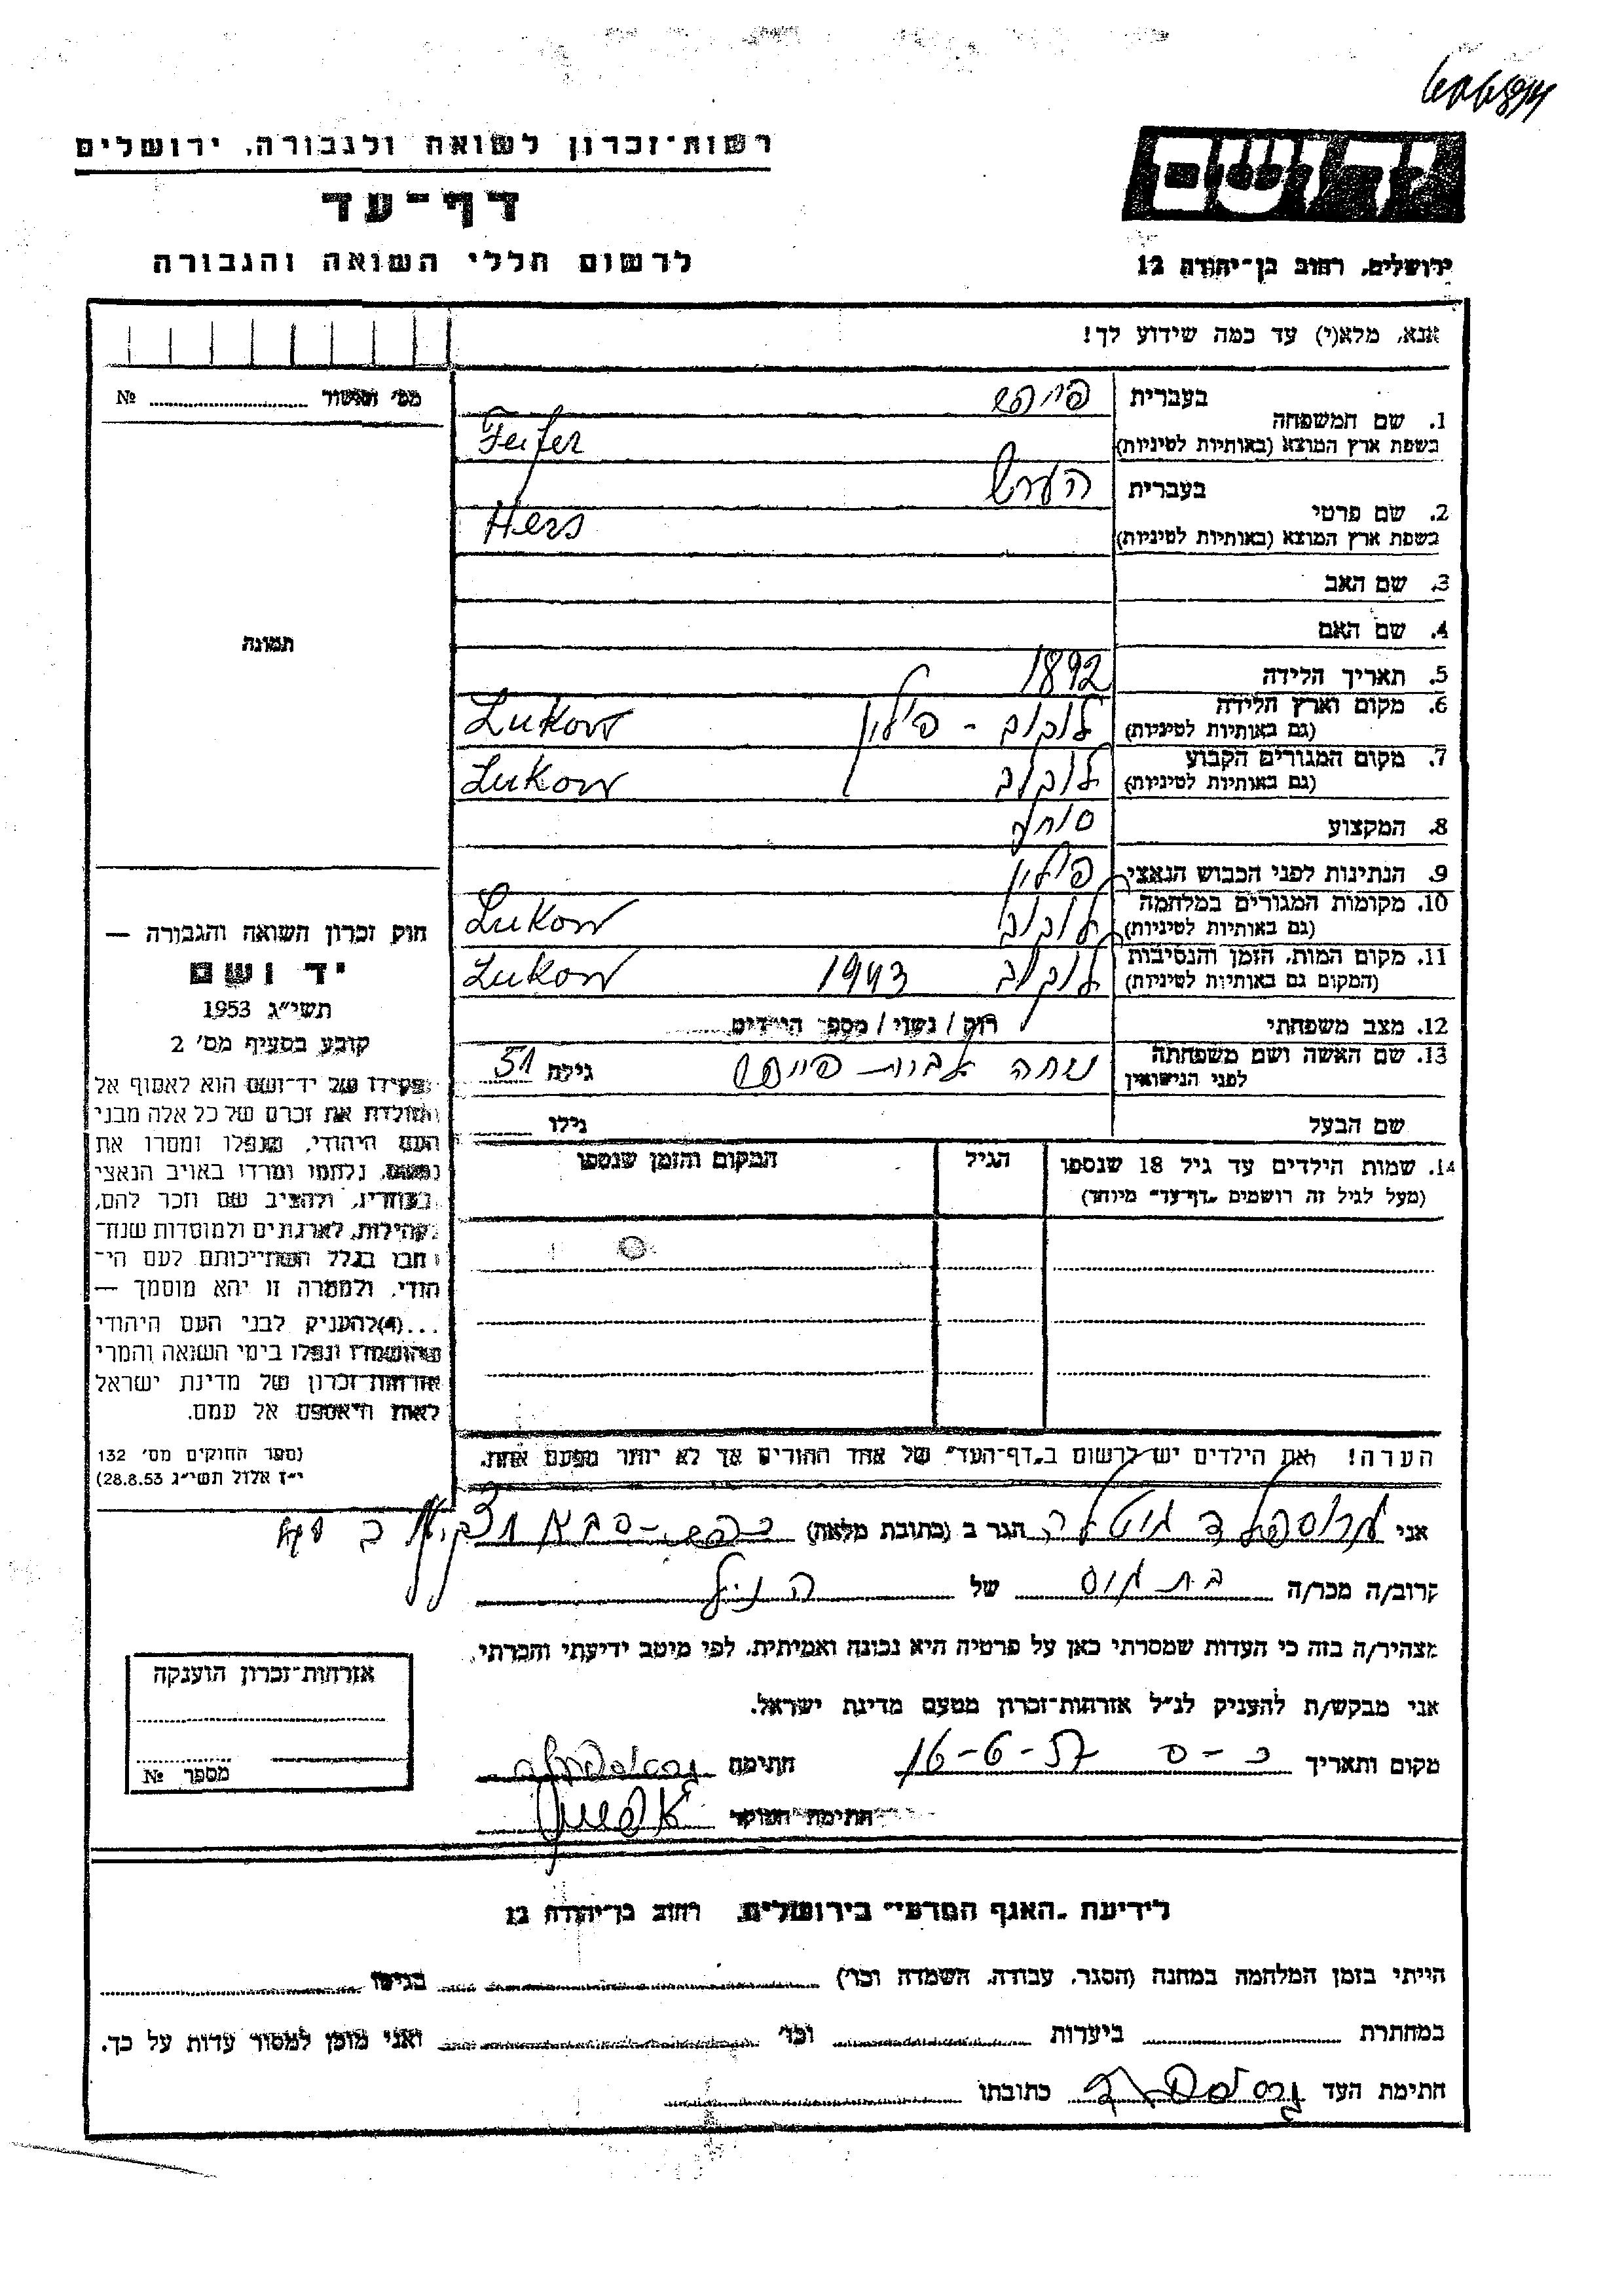 רשות־זכרון לשואה ולגבורה, ירושלים
דף־עד
לרשום חללי השואה והגבורה
יד ושם
ירושלים, רחוב בן־יהודה 12
אנא, מלא(י) עד כמה שידוע לך!
מס' תאשור №
תמונה
1. שם המשפחה בעברית פייפר
בשפת ארץ המוצא (באותיות לטיניות) Feifer
2. שם פרטי בעברית הערש
בשפת ארץ המוצא (באותיות לטיניות) Hers
3. שם האב
4. שם האם
5. תאריך הלידה 1892
6. מקום וארץ הלידה (גם באותיות לטיניות) לוקוב - פולין Lukow
7. מקום המגורים הקבוע (גם באותיות לטיניות) לוקוב Lukow
8. המקצוע סוחר
9. הנתינות לפני הכבוש הנאצי פולין
10. מקומות המגורים במלחמה (גם באותיות לטיניות) לוקוב Lukow
11. מקום המות, הזמן והנסיבות (המקום גם באותיות לטיניות) לוקוב 1943 Lukow
12. מצב משפחתי רווק / נשוי / מספר הילדים
13. שם האשה ושם משפחתה לפני הנישואין לבית פייפר גילה 51
שם הבעל גילו
14. שמות הילדים עד גיל 18 שנספו (מעל לגיל זה רושמים "דף־עד" מיוחד) הגיל המקום והזמן שנספו
הערה! את הילדים יש לרשום ב"דף־העד" של אחד ההורים אך לא יותר מפעם אחת.
חוק זכרון השואה והגבורה —
יד ושם
תשי"ג 1953
קובע בסעיף מס' 2
תפקידו של יד־ושם הוא לאסוף אל
המולדת את זכרם של כל אלה מבני
העם היהודי, שנפלו ומסרו את
נפשם, נלחמו ומרדו באויב הנאצי
ובעוזריו, ולהציב שם וזכר להם,
לקהילות, לארגונים ולמוסדות שנח־
רבו בגלל השתייכותם לעם הי־
הודי, ולמטרה זו יהא מוסמך —
...(4) להעניק לבני העם היהודי
שהושמדו ונפלו בימי השואה והמרי
אזרחות־זכרון של מדינת ישראל
לאות היאספם אל עמם.
(ספר החוקים מס' 132
י"ז אלול תשי"ג 28.8.53)
אני הגר ב (כתובת מלאה) כפר-סבא
קרוב/ה מכר/ה של הנ"ל
מצהיר/ה בזה כי העדות שמסרתי כאן על פרטיה היא נכונה ואמיתית, לפי מיטב ידיעתי והכרתי.
אני מבקש/ת להעניק לנ"ל אזרחות־זכרון מטעם מדינת ישראל.
מקום ותאריך כ-ס 16-6-57 חתימה
חתימת הפוקד
אזרחות־זכרון הוענקה
מספר №
לידיעת "האגף המדעי" בירושלים, רחוב בן־יהודה 12
הייתי בזמן המלחמה במחנה (הסגר, עבודה, השמדה וכו') בגיטו
במחתרת ביערות וכו' ואני מוכן למסור עדות על כך.
חתימת העד כתובתו